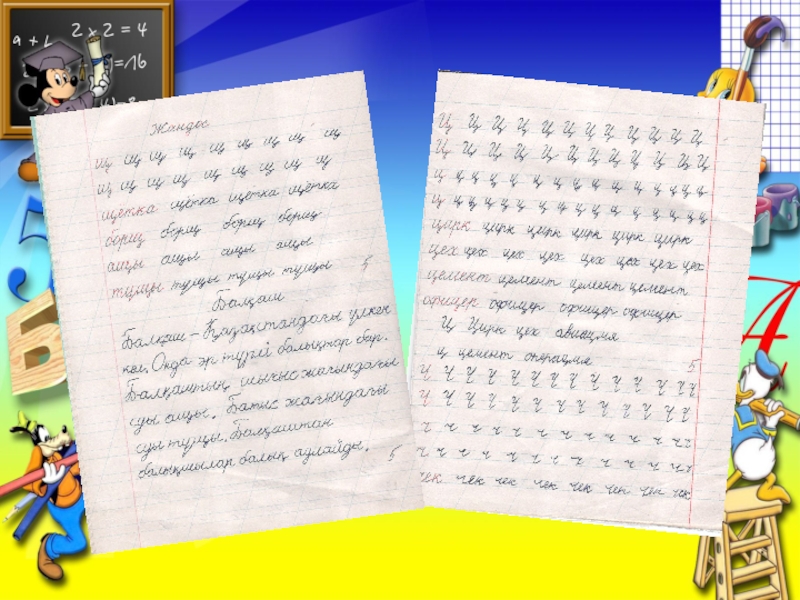 a +
2 x 2 = 4
=16
Жандос
щ щ щ щ щ щ щ щ щ
щ щ щ щ щ щ щ щ щ
щётка щётка щётка щётка
борщ борщ борщ борщ
ащы ащы ащы ащы
тұщы тұщы тұщы тұщы 5
Балқаш
Балқаш – Қазақстандағы үлкен
көл. Онда әр түрлі балықтар бар.
Балқаштың шығыс жағындағы
суы ащы. Батыс жағындағы
суы тұщы. Балқаштан
балықшылар балық аулайды. 5
Ц Ц Ц Ц Ц Ц Ц Ц Ц Ц Ц Ц
Ц Ц Ц Ц Ц Ц Ц Ц Ц Ц Ц Ц
ц ц ц ц ц ц ц ц ц ц ц ц ц ц
ц ц ц ц ц ц ц ц ц ц ц ц ц ц
цирк цирк цирк цирк цирк цирк
цех цех цех цех цех цех цех цех
цемент цемент цемент цемент
офицер офицер офицер офицер
Ц Цирк цех авиация
ц цемент операция 5
Ч Ч Ч Ч Ч Ч Ч Ч Ч Ч Ч Ч Ч
Ч Ч Ч Ч Ч Ч Ч Ч Ч Ч Ч Ч Ч
ч ч ч ч ч ч ч ч ч ч ч ч
ч ч ч ч ч ч ч ч ч ч ч ч
чек чек чек чек чек чек чек чек
Б
А